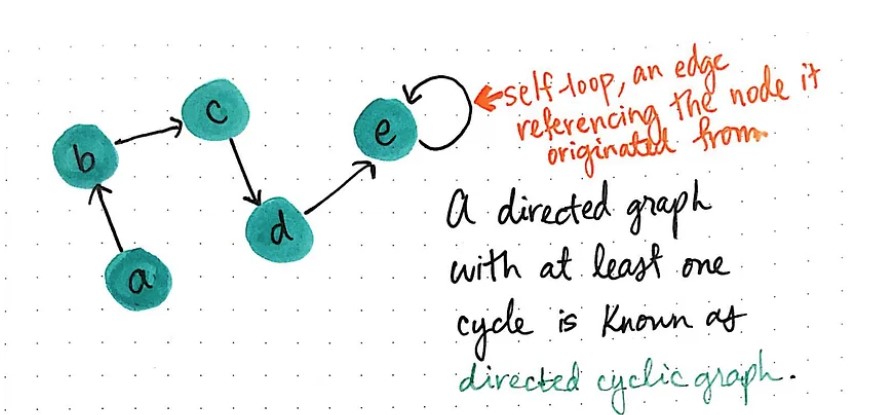 b
c
d
a
e
self-loop, an edge
referencing the node it
originated from
A directed graph
with at least one
cycle is known as
directed cyclic graph.